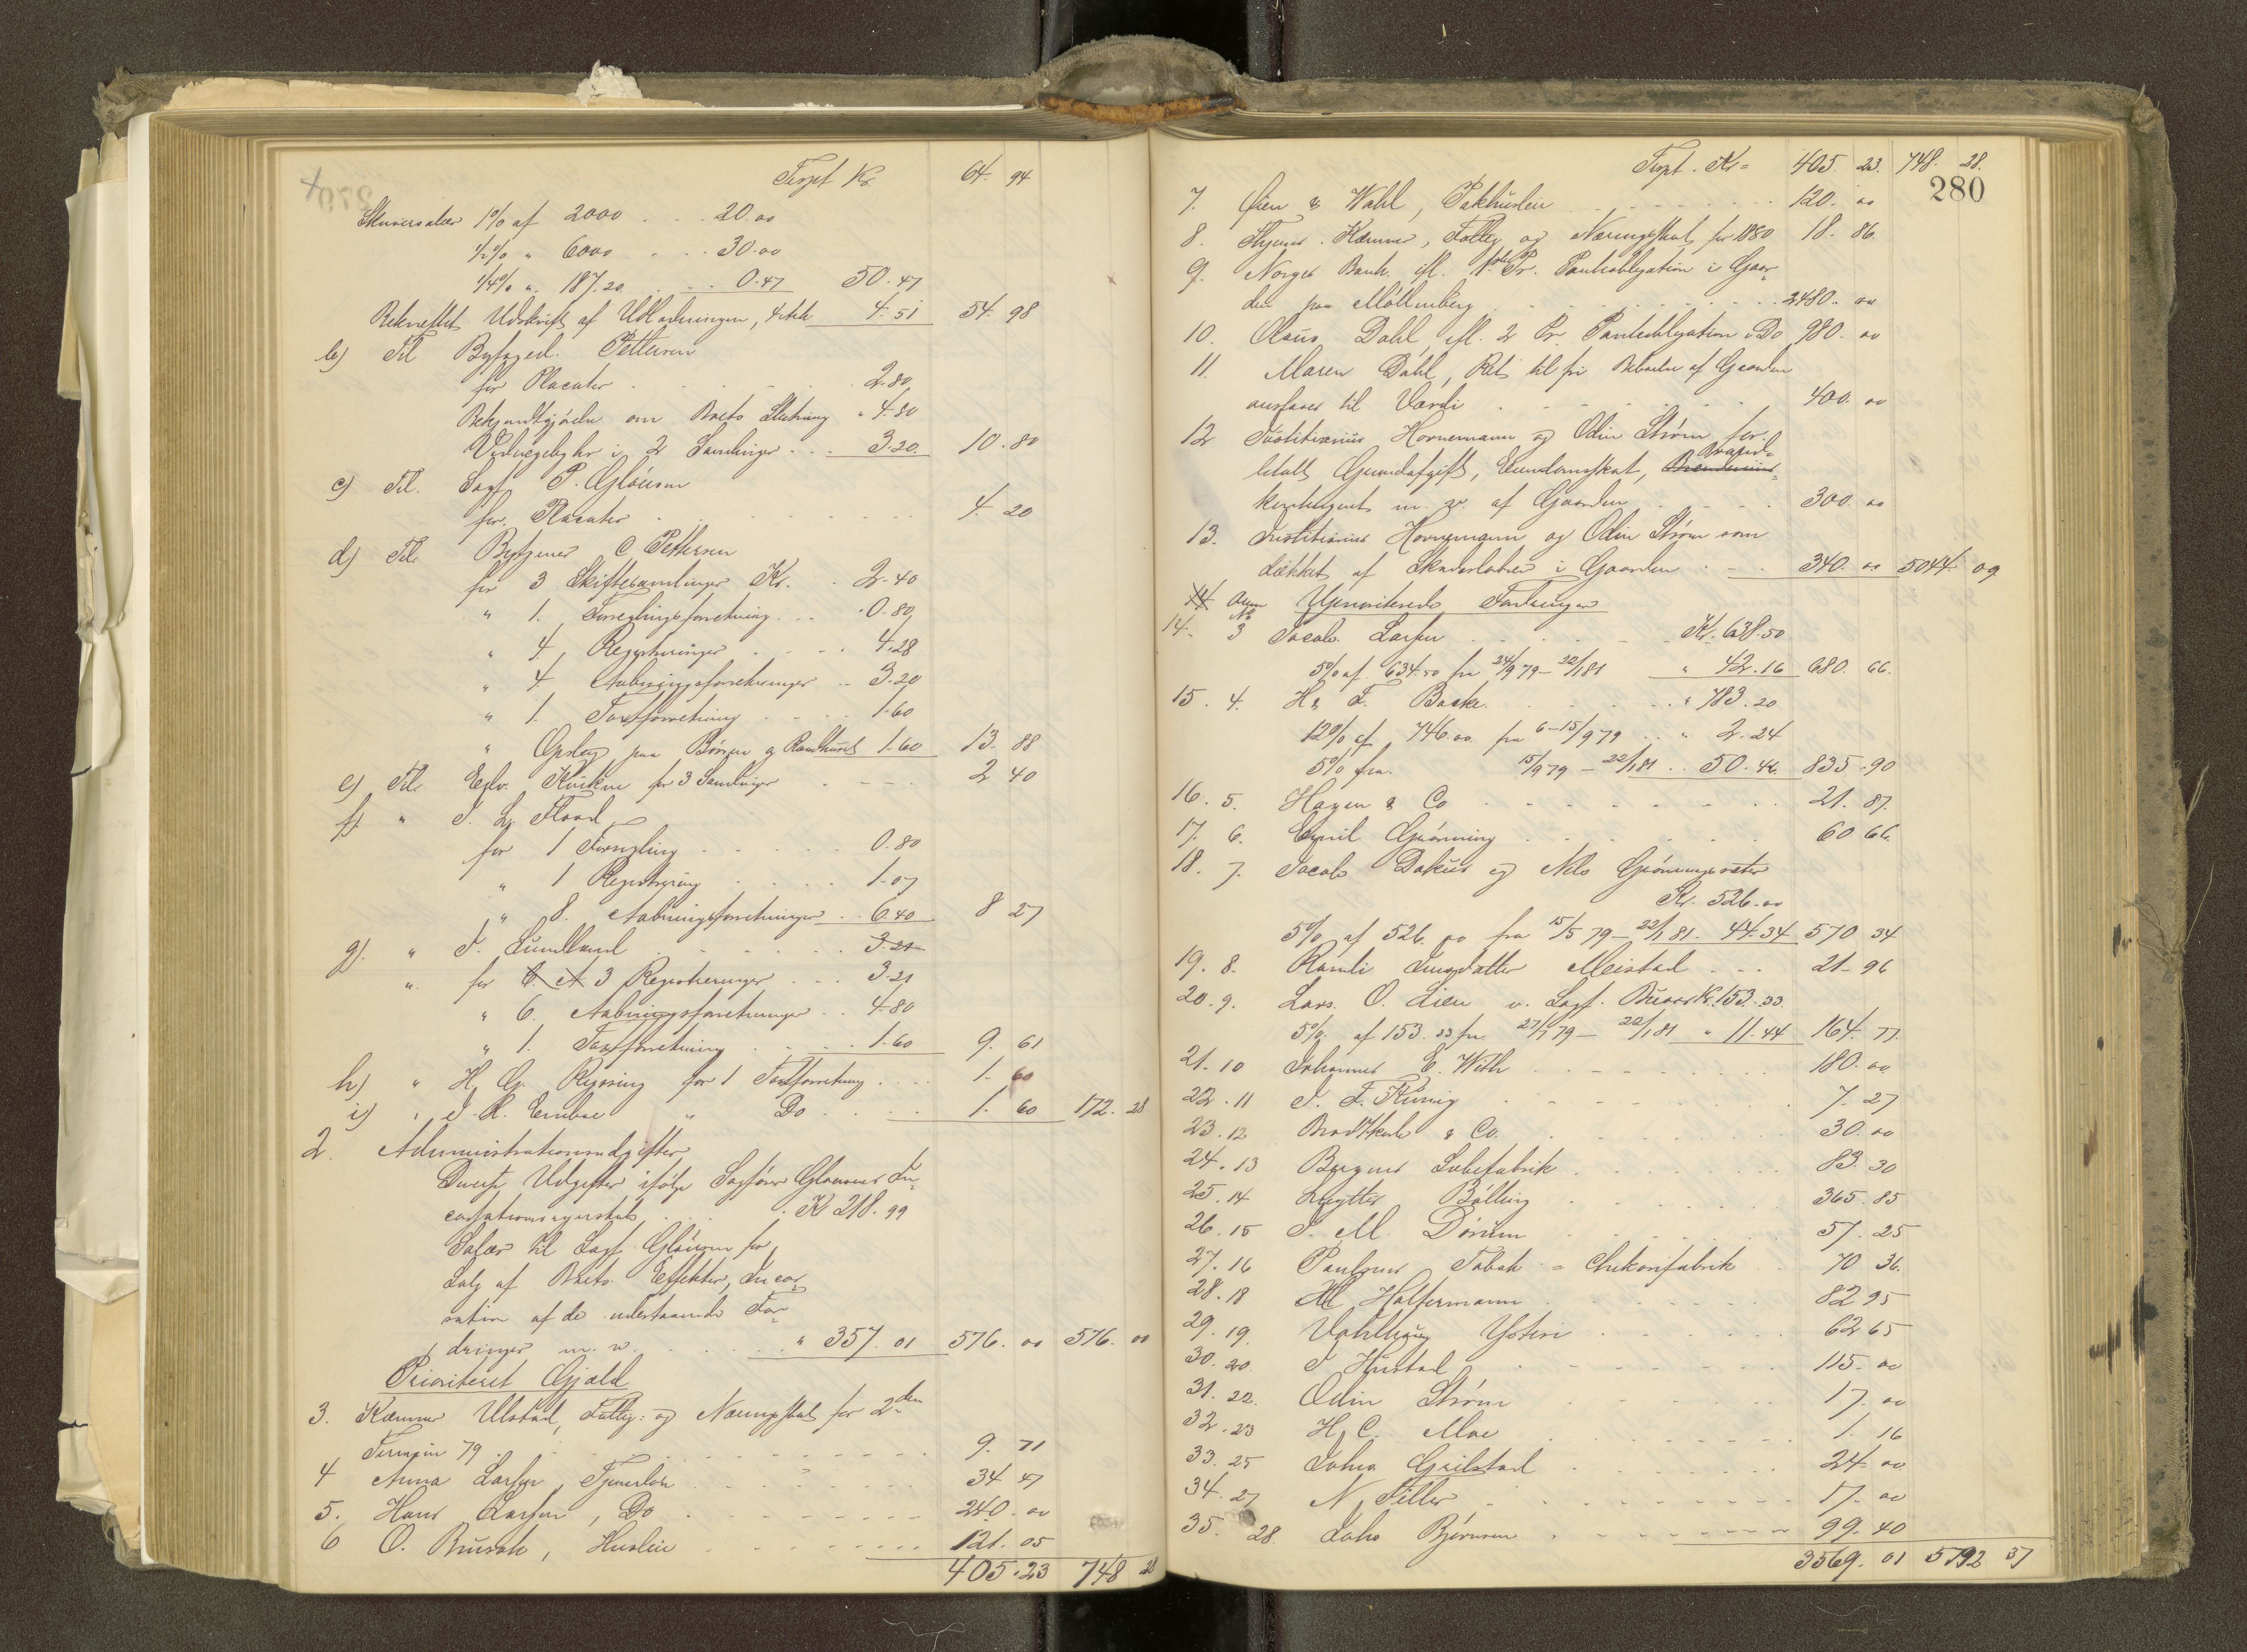 Trspt Kr. 64. 94
Skriversalær 1% af 2000 . . . 20.00
½% " 6000 . . . 30.00
¼% ". 187.20 . . . 0.47 50.47
Bekræftet Udskrift af Udlodningen, 4.51 54. 98
b) Til Byfoged. Pettersen
for Placater . . . 2.80
Bekjendtgjørelse om Boets Slutning " 4.80
Vidnegebyhr i 2 Samlinger . . . 3.20. 10.80
c) Til. Sagf. P. Gløersen
for. Placater . . . 4. 20
d) Til. C Pettersen
for 3 Skiftesamlinger Kr. . 2.40
" 1. Forseglingsforretning . . . 0.80
" 4, Registreringer . . . 4.28
" 4 Aabningsforretninger . . 3.20
" 1. Taxtforretning . . . 1.60
" Opslag paa Børsen og Raadhuset 1.60 13. 88
e) Til. Kvikne for 3 Samlinger . . . 2 40
f) " Flood
for 1 Forsegling . . . 0.80
" 1 Registrering . . . 1.07
" 8. Aabningsforretninger . . 6.40 8 27
g). " Lundlund . . . 3.21
". for 3 Registreringer . . . 3.21
" 6. Aabningsforretninger . . 4.80
" 1. Taxtforretning . . . 1.60 9. 61
h) " H, G. for 1 Taxtforretning . . . 1. 60
i) " " Do . . . 1. 60 172. 28
2. Administrationsudgifter
Diverse Udgifter ifølge Sagfører Gløersens In-
cassationsregnskab . . . Kr 218.99
Salær til Sagf. Gløersen for
Salg af Boets Effekter, Incas-
sation af de udestaaende For-
dringer m. v. . . . " 357.01 576. 00 576. 00
Prioriteret Gjæld
3. Kæmner Ulstad, Fattig- og Næringsskat for 2den
Termin 79 . . . 9. 71
4 Anna Larsen, Tjenerløn . . . 34 47
5. Hans Larsen, Do . . . 240. 00
6 O. Brusak, Husleie . . . 121. 05
405.23 748 28
Trspt. Kr= 405. 23. 748. 28.
280
7. Øien & Wahl, Pakhusleie . . . 120. 00
8. Kæmner, Fattig og Næringsskat for 1880 18. 86
9. Norges Bank ifl. 1ste Pr. Panteobligation i Gaar-
den paa Møllenberg . . . 2480. 00
10. Olaus Dahl, ifl. 2 Pr. Panteobligation i Do 980. 00
11. Maren Dahl, Ret til fri Beboelse af Gaarden
ansloves til Værdi . . . 400. 00
12 Justitiarius Hornemann og Odin Strøm for-
Brand-
latalt Grundafgift, Eiendomsskat,
kontingent m. v. af Gaarden . . . 300. 00
13. Justitiarius Hornemann og Odin Strøm som
dækket af Skadesløsbrev i Gaarden . . . 340. 00 5044. 09
14 Anm Uprioriterede Fordringer
No
14. 3 Jacob Larsen . . . Kr. 638.50
5% af 634.50 fra 24/9 79 – 22/1 81 " 42.16 680. 66.
15. 4. H, F. Baske . . . " 783.20
12% af 746.00 fra 6–15/9 79 . . " 2.24
5% fra. 15/9 79 – 22/1 81 . . 50.46. 835.90
16. 5. Hagen & Co . . . 21. 87.
17. 6. Emil Grønning . . . 60 66.
18. 7. Jacob Dahus og Nils Grønningsæter
Kr. 526.00
5% af 526.00 fra 15/5 79 – 22/1 81. 44.34 570 34
19. 8. Meistad . . . 21. 96
20. 9. Lars. O. Lien v. Sagf. Kr. 153.33.
5%. af 153.33 fra 27/7 79 – 22/1 81 " 11.44 164. 77.
21. 10 Johannes E. With . . . 180. 00
22. 11 J. F. König . . . 7. 27
23. 12 & Co. . . . 30. 00
24. 13 Bergens Sæbefabrik . . . 83. 30
25. 14 Lyytter Bølling . . . 365. 85
26. 15 J. M. Dørum . . . 57. 25
27. 16 Paulsens Tobak= Chikorifabrik . . 70 36.
28. 18 Halfermann . . . 82 95
29. 19. Ysteri . . . 62 65
30. 20 J Hustad . . . 115. 00
31. 22. Odin Strøm . . . 17. 00
32. 23 H, C. Moe . . . 1. 16
33. 25 Johan Grilstad . . . 24. 00
34. 27 N, Tiller . . . 17. 00
35. 28. Johs Bjørnson . . . 99. 40
3569. 01 5792 37